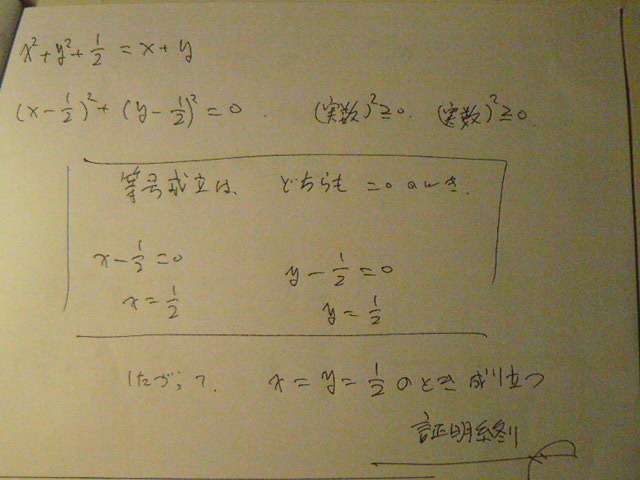 x²+y²+1/2 = x+y
(x-1/2)²+(y-1/2)²=0. (実数)²≧0. (実数)²≧0.
等号成立は、どちらも=0のとき.
x-1/2=0 y-1/2=0
x=1/2 y=1/2
したがって. x=y=1/2のとき成り立つ
証明終り